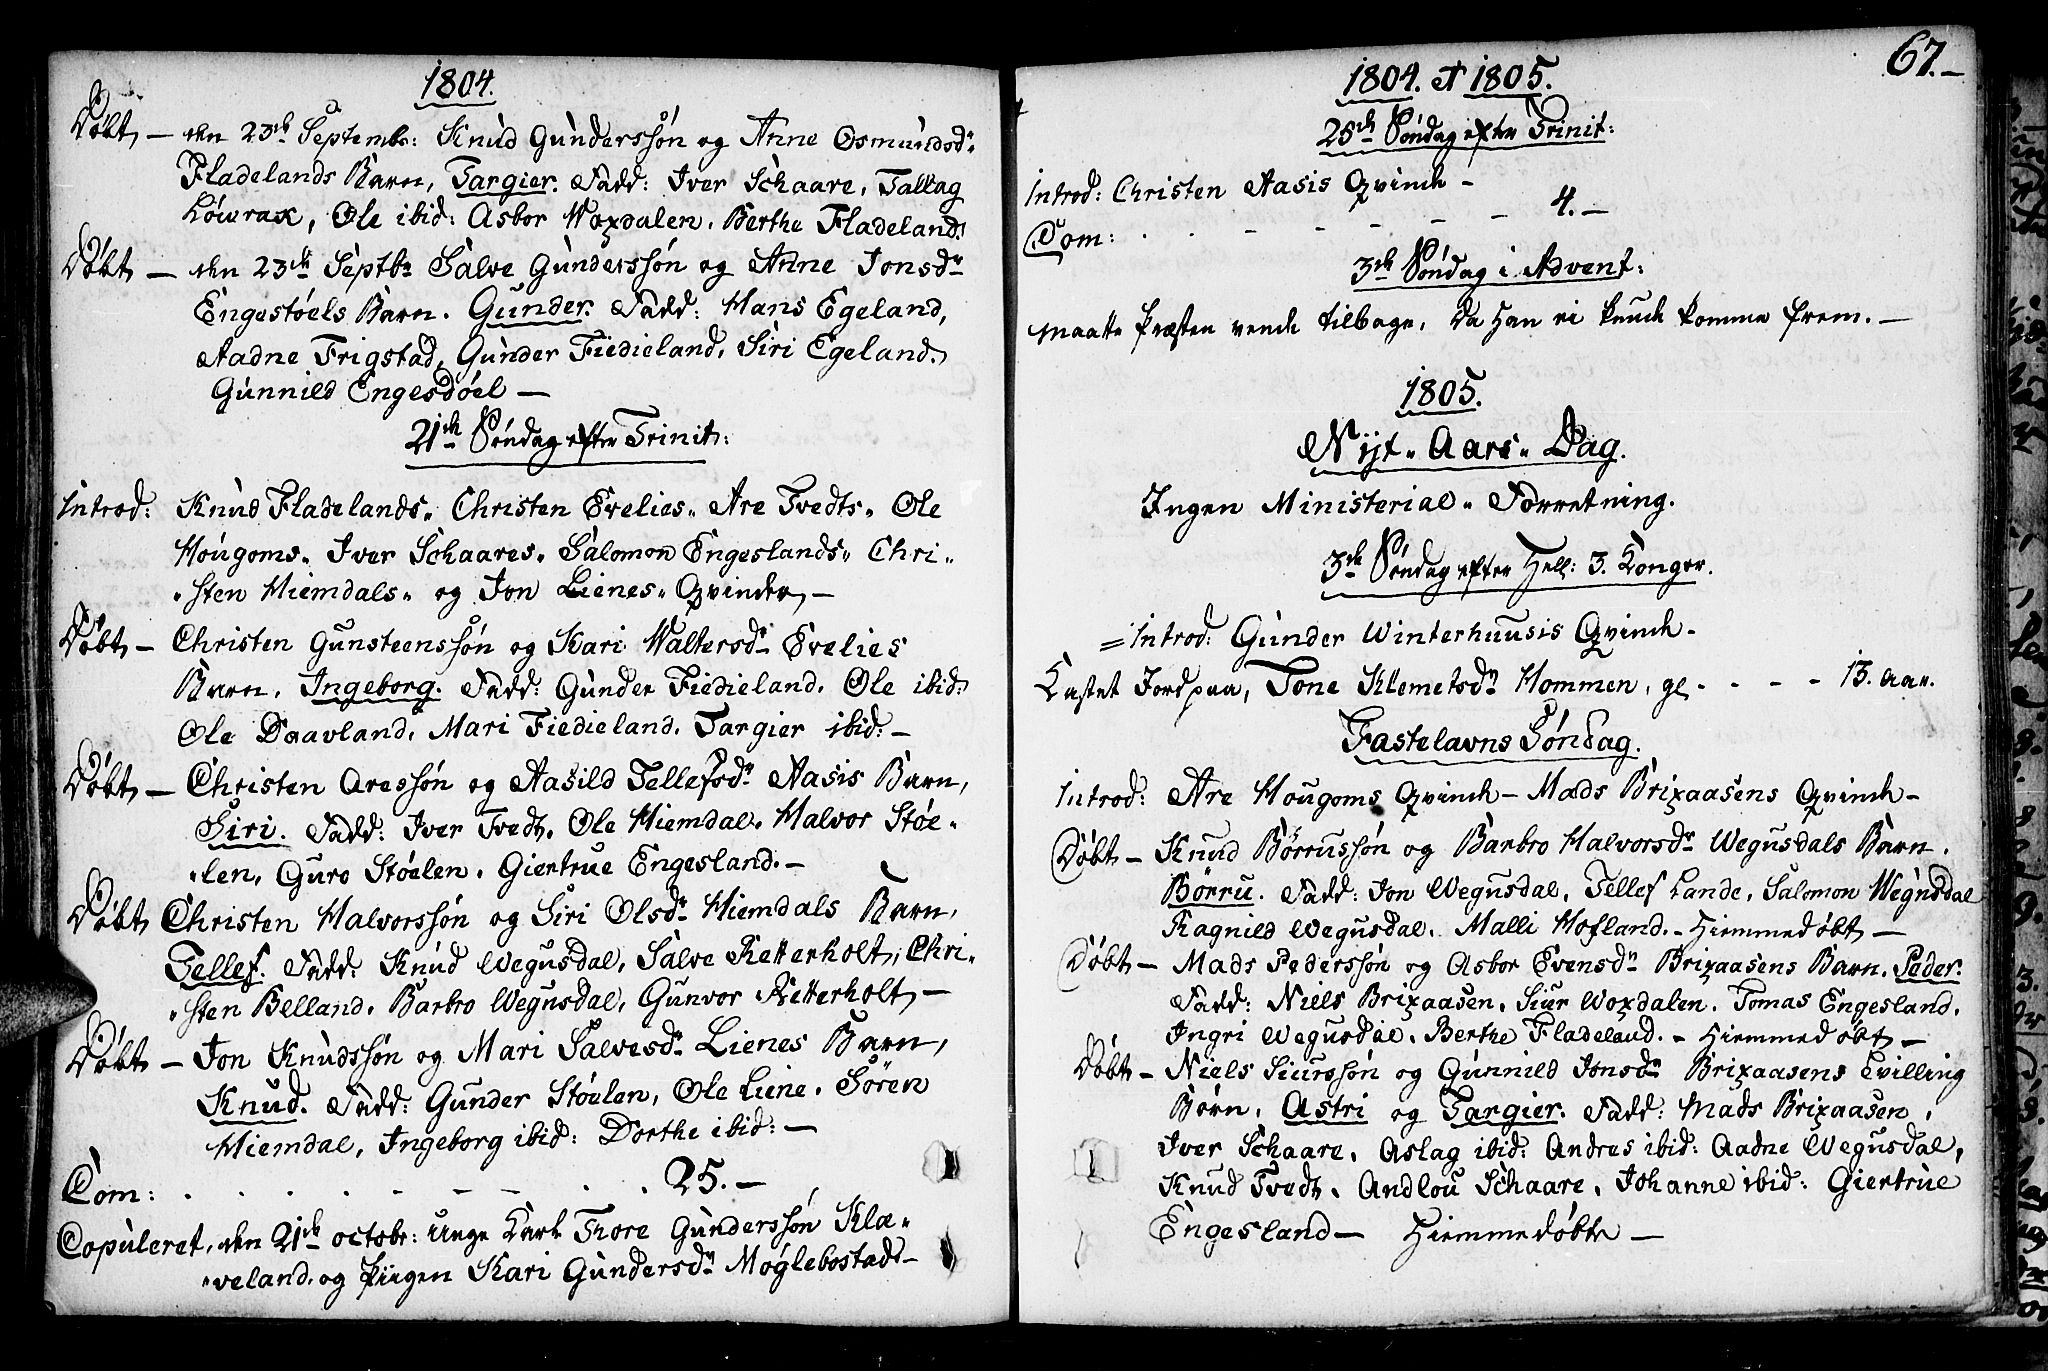 1804.
Döbt, — den 23de Septembr: Knud Gunderssön og Anne Osmundsdr
Fladelands Barn, Targier. Fadd: Iver Schaare, Tallag
Löwrax, Ole ibid: Asbor Woxdalen. Berthe Fladeland.
Döbt, — den 23de Septbr Salve Gunderssön og Anne Jonsdr
Engestöels Barn. Gunder. Fadd: Hans Egeland,
Aadne Frigstad, Gunder Fiedieland, Siri Egeland.
Gunnild Engesdöel —
21de Söndag efter Trinit:
Introd: Knud Fladelands, Christen Evelies, Are Tvedts, Ole
Hougoms, Iver Schaares, Salomon Engeslands, Chri-
-sten Hiemdals, og Jon Lienes, Qvinder, —
Döbt, — Christen Gunsteenssön og Kari Waltersdr Evelies
Barn. Ingeborg. Fadd: Gunder Fiedieland. Ole ibid:
Ole Daavland, Mari Fiedieland. Targier ibid: —
Döbt, — Christen Aressön og Aasild Tellefsdr Aasis Barn,
Siri. Fadd: Iver Tvedt, Ole Hiemdal, Halvor Stöe-
-len, Guro Stöelen. Giertrue Engesland. —
Döbt, Christen Halvorssön og Siri Olsdr Hiemdals Barn,
Tellef. Fadd: Knud Wegusdal, Salve Retterholt, Chri-
-sten Belland, Barbro Wegusdal, Gunvor Retterholt, —
Döbt, — Jon Knudssön og Mari Salvesdr Lienes Barn,
Knud. Fadd: Gunder Stöelen, Ole Liene. Sören
Hiemdal, Ingeborg ibid: Dorthe ibid: —
Com: . . . . . . . . 25. —
Copuleret, den 21de octobr: Unge Karl Thore Gunderssön Kla-
-veland. og Piigen Kari Gundersdr Möglebostads —
67. —
1804. et 1805.
25de Söndag efter Trinit:
Introd: Christen Aasis Qvinde —
Com: . . . — — — — 4. —
3de Söndag i Advent:
maatte Præsten vende tilbage, da Han ei kunde komme frem. —
1805.
Nijt-Aars-Dag.
Ingen Ministerial-Forretning.
3de Söndag efter Hell: 3. Konger.
= Introd: Gunder Winterhuusis Qvinde —
Kastet Jord paa, Tone Klemetsdr Hommen, gl. - - - - 13. aar.
Fastelavns Söndag.
Introd: Are Hougoms Qvinde — Mads Brixaasens Qvinde —
Döbt — Knud Börrussön og Barbro Halvorsdr Wegusdals Barn.
Börru. Fadd: Jon Wegusdal, Tellef Lande, Salomon Wegusdal
Ragnild Wegusdal. Malli Hofland. — Hiemmedöbt —
Döbt, — Mads Pederssön og Asbor Evensdr Brixaasens Barn. Peder.
Fadd: Niels Brixaasen. Siur Woxdalen. Tomas Engesland.
Ingri Wegusdal. Berthe Fladeland. — Hiemmedöbt, —
Döbt, — Niels Siurssön og Gunnild Jonsdr Brixaasens Tvilling
Börn. Astri og Targier. Fadd: Mads Brixaasen,
Iver Schaare, Aslag ibid: Andres ibid: Aadne Wegusdal,
Knud Tvedt, Andlou Schaare, Johanne ibid: Giertrue
Engesland — Hiemmedöbte —